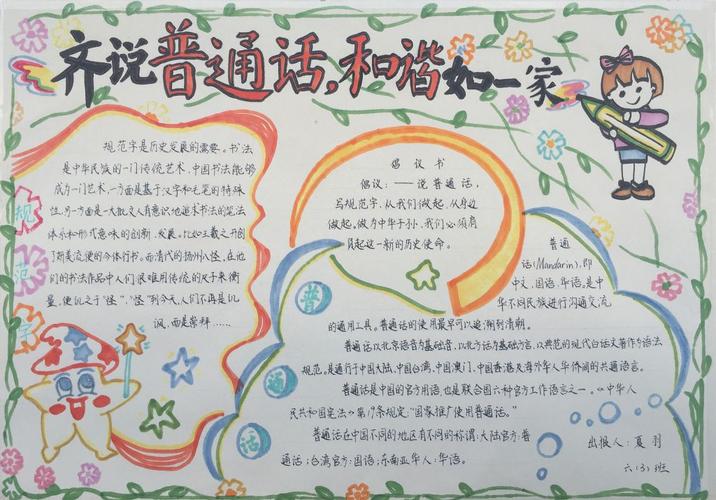 齐说普通话,和谐如一家
规范字
规范字是历史发展的需要。书法
是中华民族的一门传统艺术,中国书法能够
成为一门艺术,一方面是基于汉字和毛笔的特殊
性,另一方面是一大批文人有意识地追求书法的笔法
体系和形式意味的创新、发展。比如王羲之开创
了妍美流便的今体行书。而清代的扬州八怪,在他
们的书法作品中人们很难用传统的尺子来衡
量,便讥之于“怪”,“怪”到今天,人们不再是讥
讽,而是崇拜……
倡议书
倡议:——说普通话,
写规范字,从我们做起,从身边
做起。做为中华子孙,我们必须肩
负起这一新的历史使命。
普通话
普通
话(Mandarin),即
中文,国语,华语,是中
华不同民族进行沟通交流
的通用工具。普通话的使用最早可以追溯到清朝。
普通话以北京语音为基础音,以北方话为基础方言,以典范的现代白话文著作为语法
规范。是通行于中国大陆,中国台湾,中国澳门,中国香港及海外华人华侨间的共通语言。
普通话是中国的官方用语,也是联合国六种官方工作语言之一。《中华人
民共和国宪法》第19条规定:“国家推广使用普通话。”
普通话在中国不同的地区有不同的称谓:大陆官方:普
通话;台湾官方:国语;东南亚华人:华语。
出报人:夏羽
六(3)班